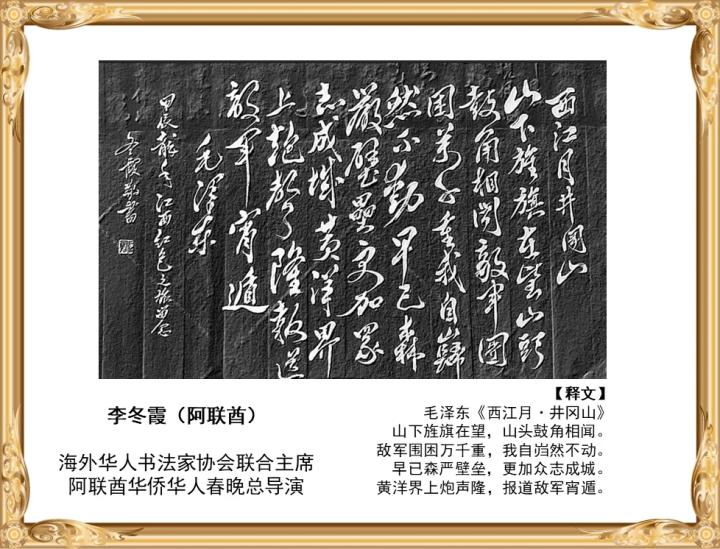 西江月井岡山
山下旌旗在望山頭
鼓角相闻敵軍圍
困萬千重我自巋
然不動早已森
嚴壁壘更加眾
志成城黄洋界
上炮聲隆報道
敵軍宵遁
毛澤東
甲辰龍年江西红色之旅留念
冬霞敬書
李冬霞（阿联酋）
海外华人书法家协会联合主席
阿联酋华侨华人春晚总导演
【释文】
毛泽东《西江月·井冈山》
山下旌旗在望，山头鼓角相闻。
敌军围困万千重，我自岿然不动。
早已森严壁垒，更加众志成城。
黄洋界上炮声隆，报道敌军宵遁。